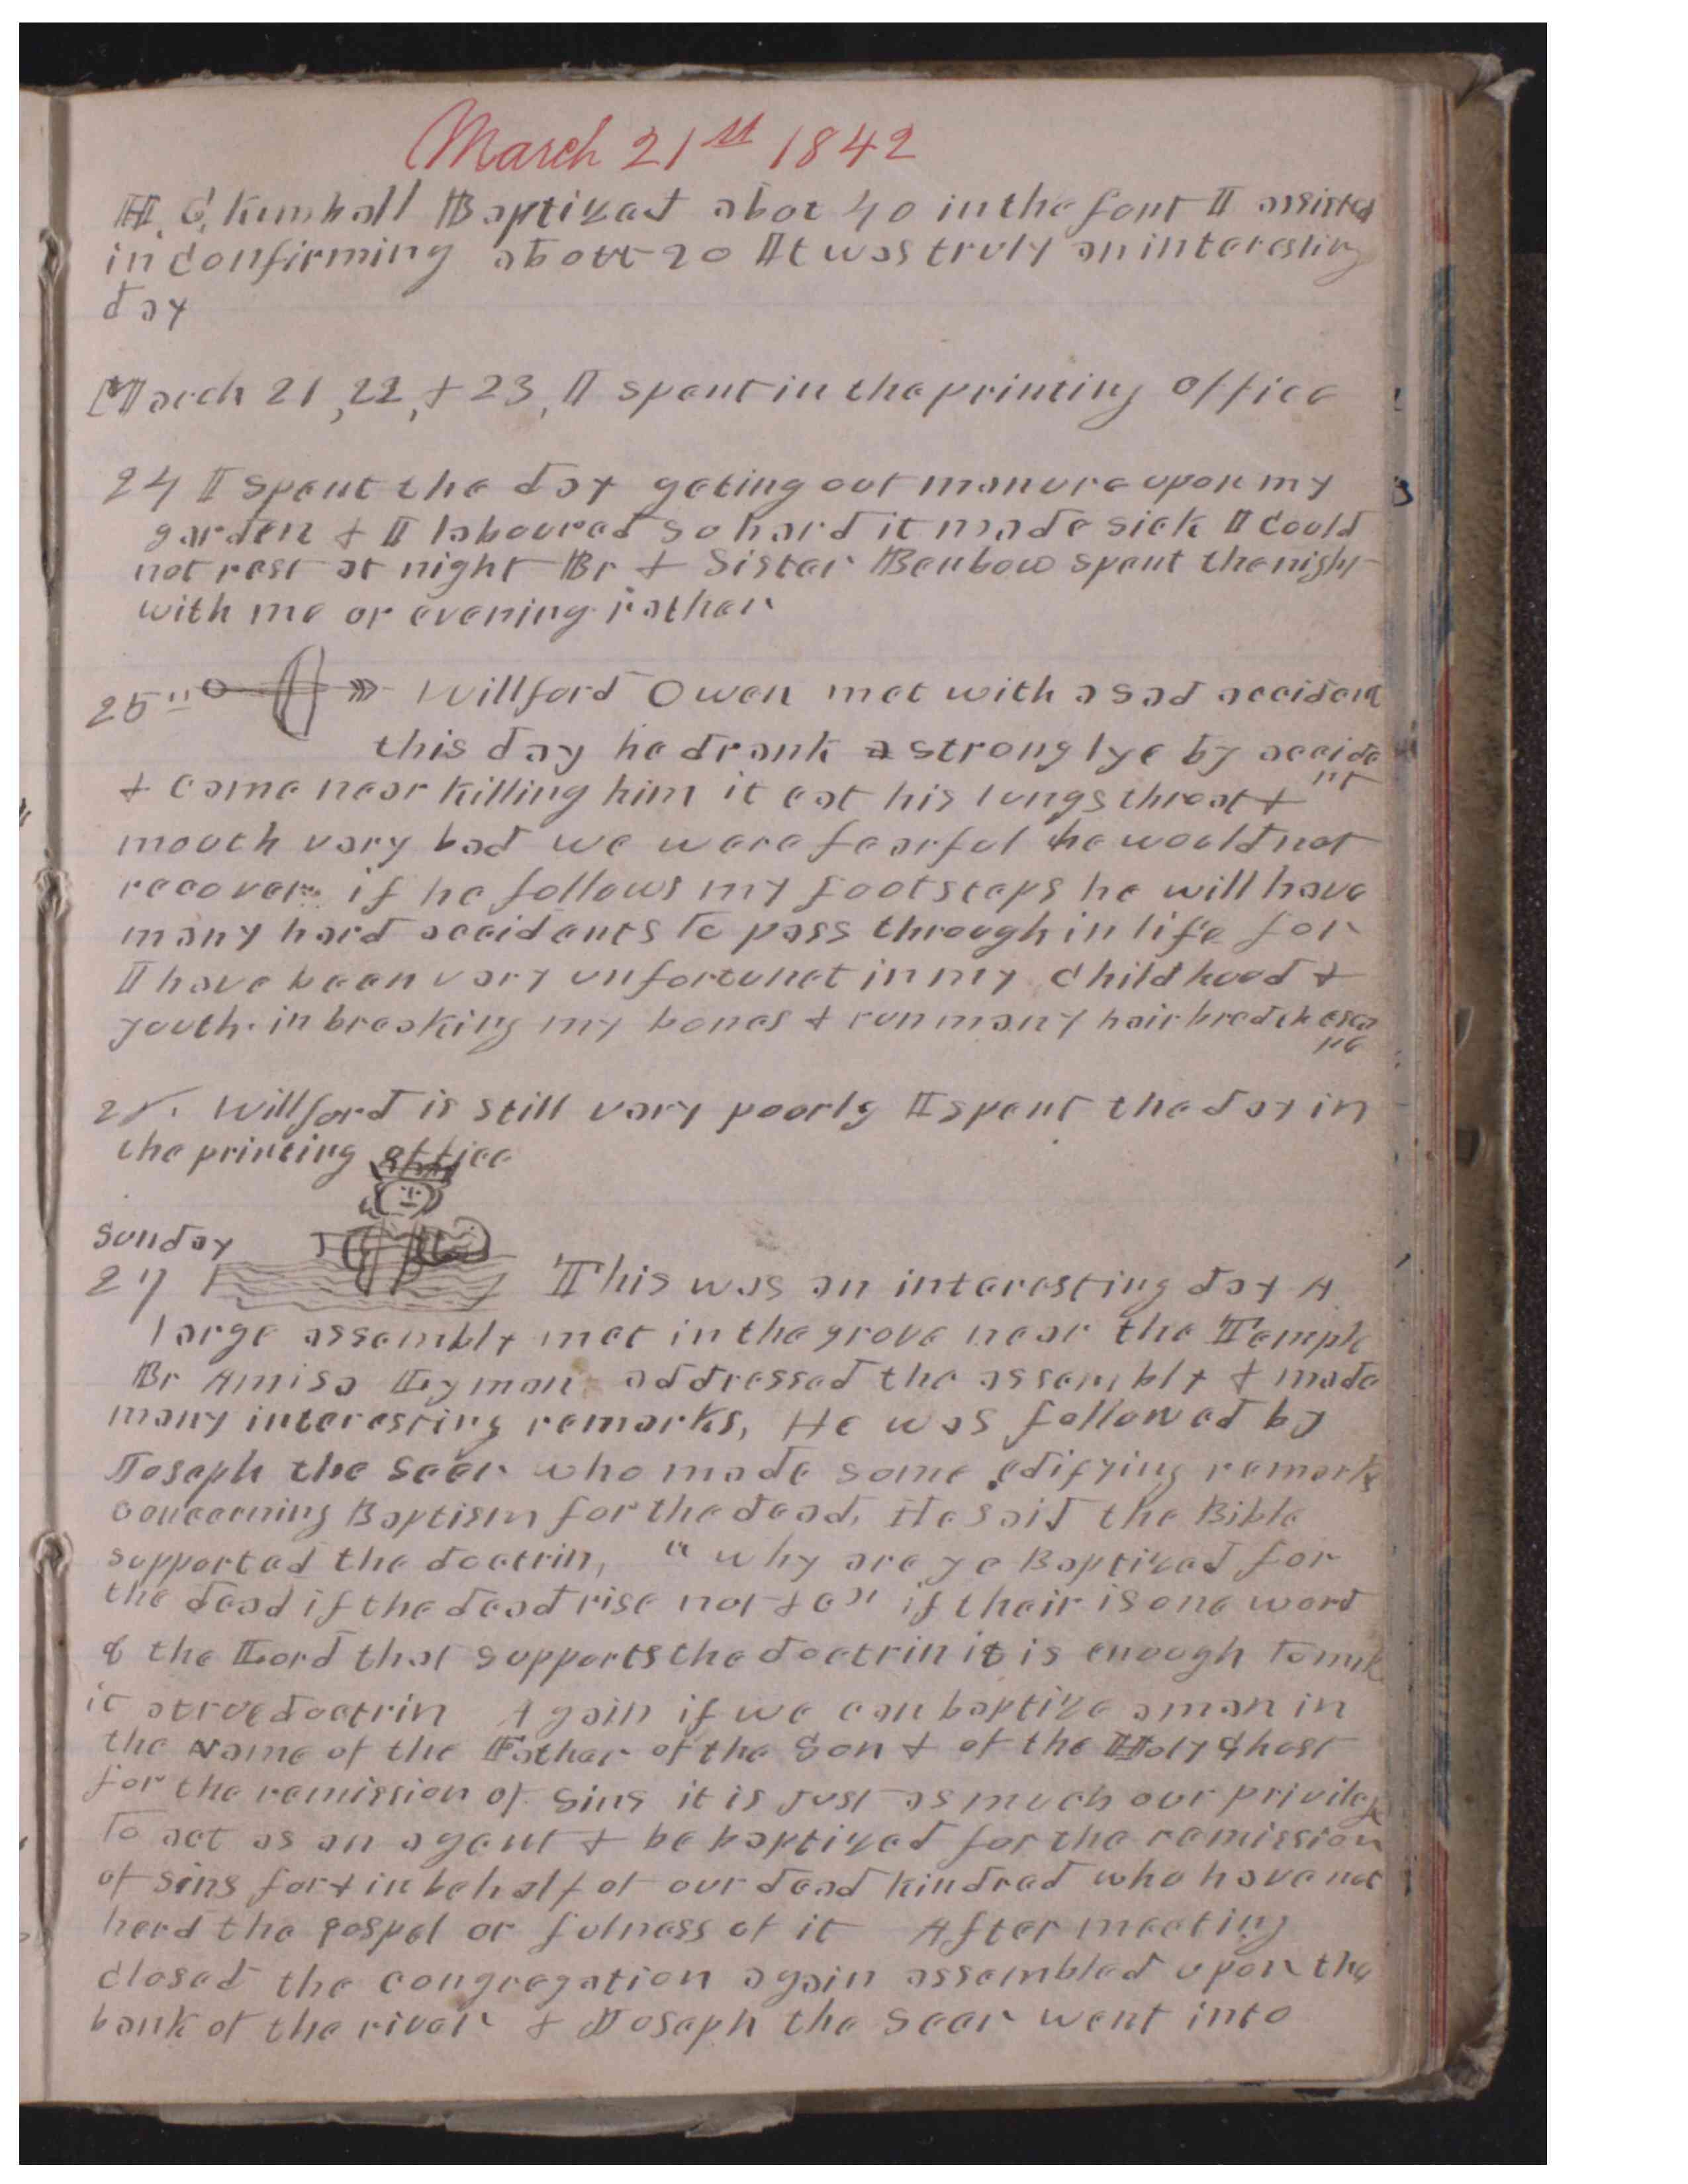 March 21st 1842
H. C. Kimball Baptized abot 40 in the font I assisted
in confirming about 20 It was truly an interesting
day
March 21, 22, & 23, I spent in the printing office
24 I spent the day geting out manure upon my
garden & I laboured so hard it made sick I could
not rest at night Br & Sister Benbow spent the night
with me or evening rather
25th Willford Owen met with a sad accident
this day he drank a strong lye by accide
nt
& came near killing him it eat his lungs throat &
mouth very bad we were fearful he would not
recover. if he follows my footsteps he will have
many hard accidents to pass through in life for
I have been very unfortunet in my childhood &
youth in breaking my bones & run many hair bredth esca
pe
26. Willford is still very poorly I spent the day in
the printing office
Sunday
27 This was an interesting day A
large assembly met in the grove near the Temple
Br Amisa Lyman addressed the assembly & made
many interesting remarks, He was followed by
Joseph the Seer who made some edifying remarks
concerning Baptism for the dead, He said the Bible
supported the doctrin, "why are ye Baptized for
the dead if the dead rise not &c" if their is one word
of the Lord that supports the doctrin it is enough to make
it a true doctrin Again if we can baptize a man in
the name of the Father of the Son & of the Holy Ghost
for the remission of sins it is just as much our privilege
to act as an agent & be baptized for the remission
of sins for & in behalf of our dead kindred who have not
herd the gospel or fulness of it After meeting
closed the congregation again assembled upon the
bank of the river & Joseph the Seer went into